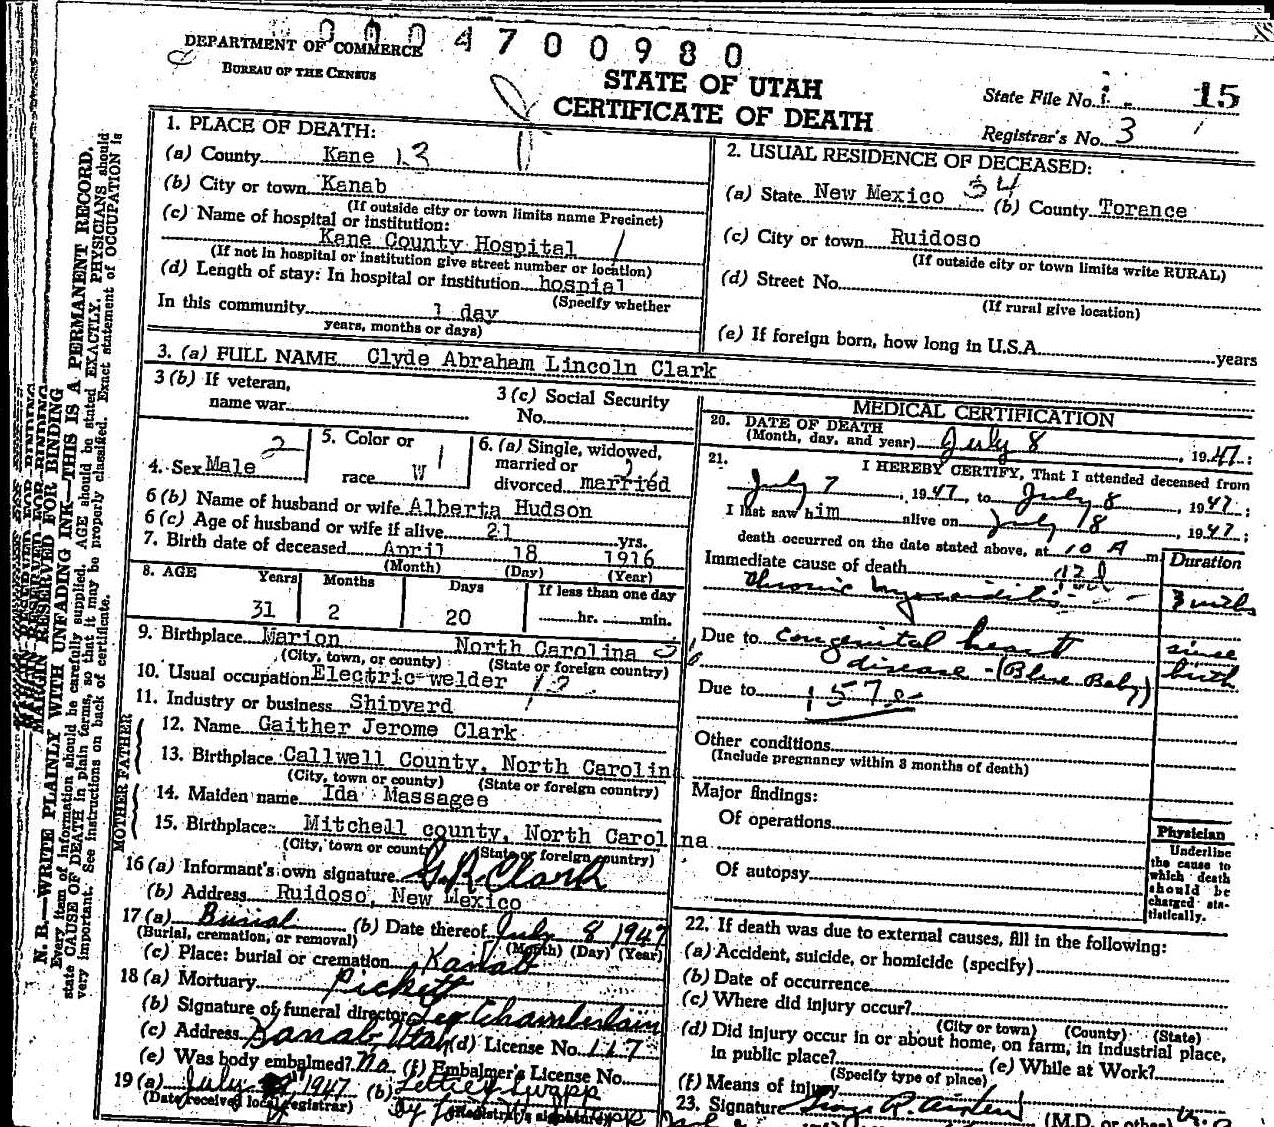 0004700980
DEPARTMENT OF COMMERCE
BUREAU OF THE CENSUS
STATE OF UTAH
CERTIFICATE OF DEATH
State File No. 15
Registrar's No. 3
N. B.—WRITE PLAINLY WITH UNFADING INK—THIS IS A PERMANENT RECORD.
MARGIN RESERVED FOR BINDING
Every item of information should be carefully supplied. AGE should be stated EXACTLY. PHYSICIANS should
state CAUSE OF DEATH in plain terms, so that it may be properly classified. Exact statement of OCCUPATION is
very important. See instructions on back of certificate.
1. PLACE OF DEATH:
(a) County Kane 13
(b) City or town Kanab
(If outside city or town limits name Precinct)
(c) Name of hospital or institution:
Kane County Hospital 1
(If not in hospital or institution give street number or location)
(d) Length of stay: In hospital or institution hospial
(Specify whether
In this community 1 day
years, months or days)
2. USUAL RESIDENCE OF DECEASED:
(a) State New Mexico 34 (b) County Torance
(c) City or town Ruidoso
(If outside city or town limits write RURAL)
(d) Street No.
(If rural give location)
(e) If foreign born, how long in U.S.A. years
3. (a) FULL NAME Clyde Abraham Lincoln Clark
3 (b) If veteran,
name war
3 (c) Social Security
No.
4. Sex Male 2
5. Color or
race W 1
6. (a) Single, widowed,
married or
divorced married
6 (b) Name of husband or wife Alberta Hudson
6 (c) Age of husband or wife if alive 21 yrs.
7. Birth date of deceased April 18 1916
(Month) (Day) (Year)
8. AGE Years Months Days If less than one day
31 2 20 hr. min.
9. Birthplace Marion North Carolina
(City, town, or county) (State or foreign country)
10. Usual occupation Electric welder
11. Industry or business Shipyard
FATHER
12. Name Gaither Jerome Clark
13. Birthplace Callwell County, North Carolin
(City, town or county) (State or foreign country)
MOTHER
14. Maiden name Ida Massagee
15. Birthplace: Mitchell county, North Carolina
(City, town or county) (State or foreign country)
16 (a) Informant's own signature G.R. Clark
(b) Address Ruidoso, New Mexico
17 (a) Burial (b) Date thereof July 8 1947
(Burial, cremation, or removal) (Month) (Day) (Year)
(c) Place: burial or cremation Kanab
18 (a) Mortuary Pickett
(b) Signature of funeral director Leo Chamberlain
(c) Address Kanab, Utah (d) License No. 117
(e) Was body embalmed? No (f) Embalmer's License No.
19 (a) July 1947 (b) Lettie Swapp
(Date received local registrar) (Registrar's signature)
MEDICAL CERTIFICATION
20. DATE OF DEATH
(Month, day, and year) July 8, 1947;
21. I HEREBY CERTIFY, That I attended deceased from
July 7, 1947, to July 8 1947;
I last saw him alive on July 8, 1947;
death occurred on the date stated above, at 10 A m.
Duration
Immediate cause of death
Chronic Myocarditis 3 mths
Due to Congenital heart since
disease - (Blue Baby) birth
Due to 157
Other conditions
(Include pregnancy within 3 months of death)
Major findings:
Of operations
Of autopsy
Physician
Underline
the cause to
which death
should be
charged sta-
tistically.
22. If death was due to external causes, fill in the following:
(a) Accident, suicide, or homicide (specify)
(b) Date of occurrence
(c) Where did injury occur?
(City or town) (County) (State)
(d) Did injury occur in or about home, on farm, in industrial place,
in public place? (e) While at Work?
(Specify type of place)
(f) Means of injury
23. Signature George R. Aiken (M.D. or other)